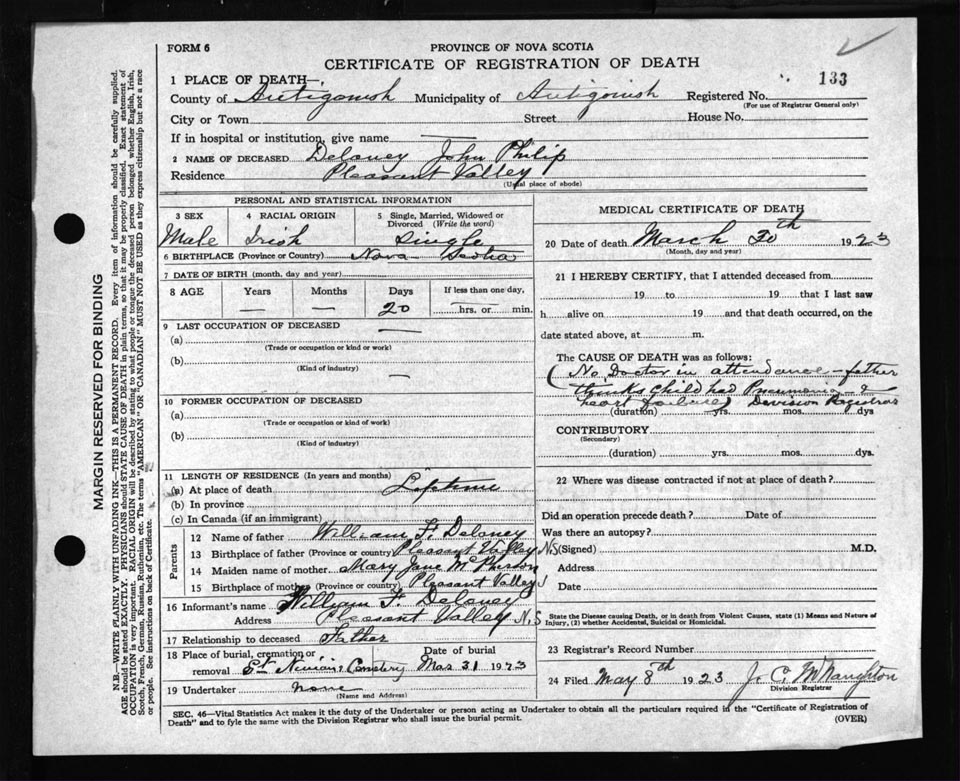 FORM 6
PROVINCE OF NOVA SCOTIA
CERTIFICATE OF REGISTRATION OF DEATH
133
1 PLACE OF DEATH—
County of Antigonish Municipality of Antigonish Registered No.
(For use of Registrar General only)
City or Town Street House No.
If in hospital or institution, give name —
2 NAME OF DECEASED Delaney John Philip
Residence Pleasant Valley
(Usual place of abode)
PERSONAL AND STATISTICAL INFORMATION
3 SEX 4 RACIAL ORIGIN 5 Single, Married, Widowed or Divorced (Write the word)
Male Irish Single
6 BIRTHPLACE (Province or Country) Nova Scotia
7 DATE OF BIRTH (month, day and year)
8 AGE Years Months Days If less than one day,
— — 20 — hrs. or min.
9 LAST OCCUPATION OF DECEASED
(a) —
(Trade or occupation or kind or work)
(b)
(Kind of industry)
—
10 FORMER OCCUPATION OF DECEASED
(a)
(Trade or occupation or kind of work)
(b)
(Kind of industry)
11 LENGTH OF RESIDENCE (In years and months)
(a) At place of death Lifetime
(b) In province
(c) In Canada (if an immigrant)
Parents
12 Name of father William F. Delaney
13 Birthplace of father (Province or country) Pleasant Valley N.S
14 Maiden name of mother Mary Jane McPherson
15 Birthplace of mother (Province or country) Pleasant Valley
16 Informant's name William F. Delaney
Address Pleasant Valley N.S
17 Relationship to deceased Father
18 Place of burial, cremation or Date of burial
removal St Cemetery Mar 31 1923
19 Undertaker none
(Name and Address)
MEDICAL CERTIFICATE OF DEATH
20 Date of death March 30th 1923
(Month, day and year)
21 I HEREBY CERTIFY, that I attended deceased from
19 to 19 that I last saw
h alive on 19 and that death occurred, on the
date stated above, at m.
The CAUSE OF DEATH was as follows:
(No Doctor in attendance – father
thinks child had Pneumonia &
heart failure) Division Registrar
(duration) yrs. mos. dys
CONTRIBUTORY
(Secondary)
(duration) yrs. mos. dys.
22 Where was disease contracted if not at place of death?
Did an operation precede death? Date of
Was there an autopsy?
(Signed) M.D.
Address
Date
State the Disease causing Death, or in death from Violent Causes, state (1) Means and Nature of
Injury, (2) whether Accidental, Suicidal or Homicidal.
23 Registrar's Record Number
24 Filed May 8th 1923 J. C. McNaughton
Division Registrar
SEC. 46—Vital Statistics Act makes it the duty of the Undertaker or person acting as Undertaker to obtain all the particulars required in the "Certificate of Registration of
Death" and to fyle the same with the Division Registrar who shall issue the burial permit.
(OVER)
MARGIN RESERVED FOR BINDING
N.B.—WRITE PLAINLY WITH UNFADING INK—THIS IS A PERMANENT RECORD. Every item of information should be carefully supplied.
AGE should be stated EXACTLY. PHYSICIANS should STATE CAUSE OF DEATH in plain terms, so that it may be properly classified. Exact statement of
OCCUPATION is very important. RACIAL ORIGIN will be described by stating to what people or tongue the deceased person belonged whether English, Irish,
Scotch, French, German, Russian, Ruthenian, etc. The terms "AMERICAN" OR "CANADIAN" MUST NOT BE USED as they express citizenship but not a race
or people. See instructions on back of Certificate.